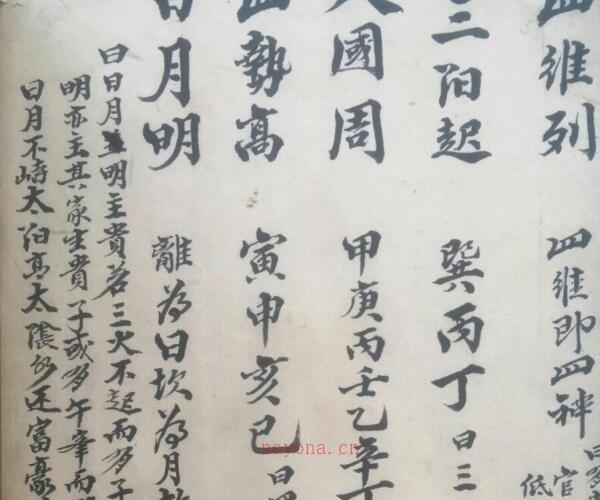 四維列 四維即四神
三阳起 巽丙丁 曰三
國周 甲庚丙壬乙辛丁
勢高 寅申亥巳
日月明 離為日坎為月
曰日月並明主貴若三火不起而多子
明亦主其家生貴子或多午
日月不峙太阳高太陰 还富豪
官
低
nayona.cn